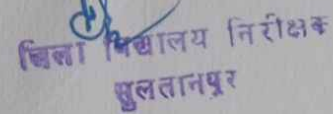 जिला विद्यालय निरीक्षक
सुलतानपुर